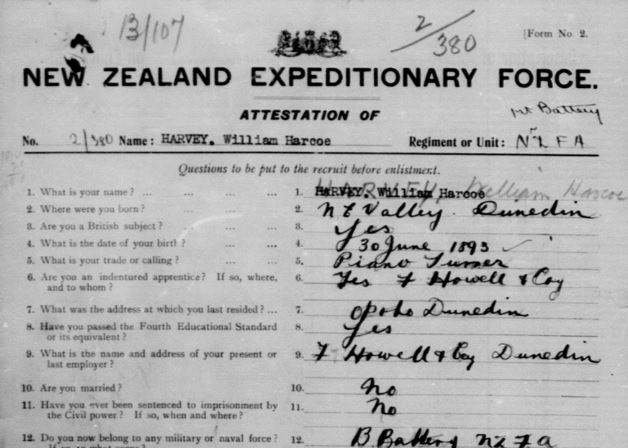 13/107
2/380
[Form No 2.
NEW ZEALAND EXPEDITIONARY FORCE.
ATTESTATION OF
Battery
No. 2/380 Name: HARVEY. William Harcoe Regiment or Unit: NZFA
Questions to be put to the recruit before enlistment.
1. What is your name? ... ... ... ... 1. HARVEY. William Harcoe
2. Where were you born? ... ... ... 2. N E Valley Dunedin
3. Are you a British subject? ... ... 3. Yes
4. What is the date of your birth? ... ... 4. 30 June 1893
5. What is your trade or calling? ... ... 5. Piano Turner
6. Are you an indentured apprentice? If so, where, 6. Yes F Howell & Coy
and to whom?
7. What was the address at which you last resided? ... 7. Opoho Dunedin
8. Have you passed the Fourth Educational Standard 8. Yes
or its equivalent?
9. What is the name and address of your present or 9. F Howell & Coy Dunedin
last employer?
10. Are you married? 10. No
11. Have you ever been sentenced to imprisonment by 11. No
the Civil power? If so, when and where?
12. Do you now belong to any military or naval force? 12. B Battery NZFA